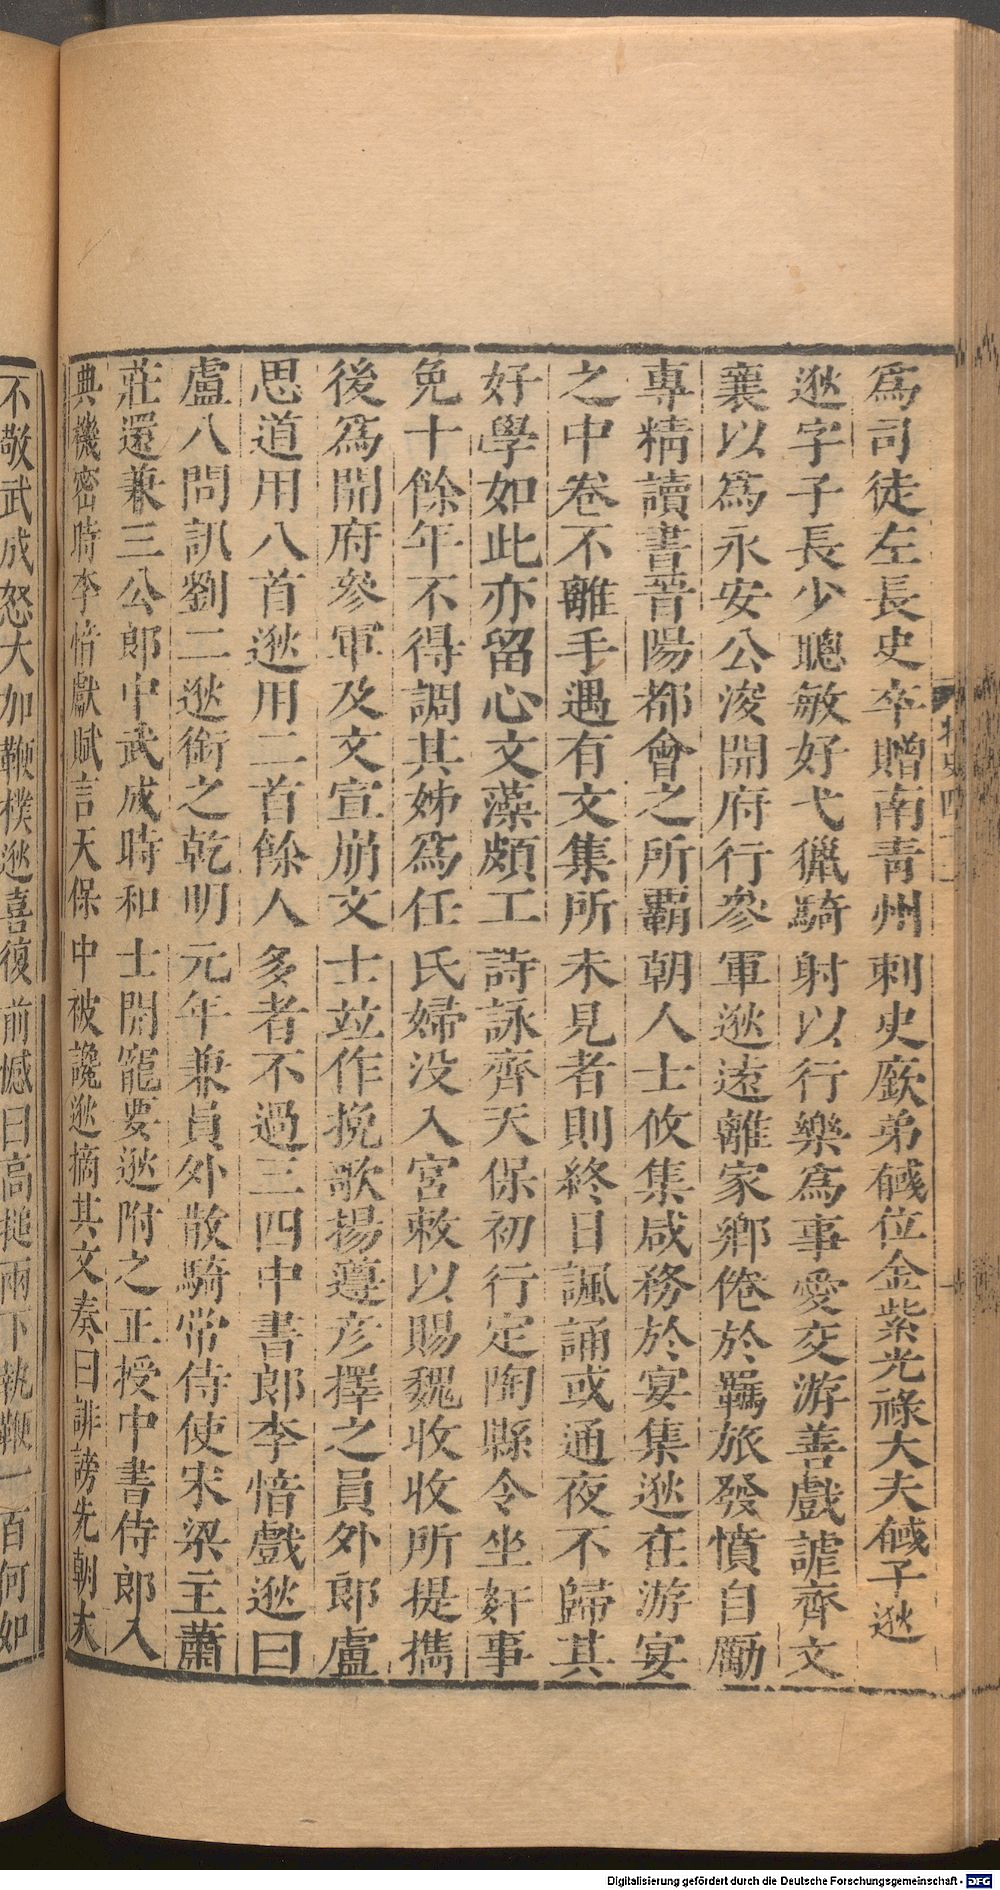 爲司徒左長史卒贈南靑州刺史厥弟𥒥位金紫光祿大夫𥒥子逖
逖字子長少聰敏好弋獵騎射以行樂爲事愛交游善戲謔齊文
襄以爲永安公浚開府行參軍逖遠離家鄉倦於羈旅發憤自勵
專精讀書晉陽都會之所霸朝人士攸集咸務於宴集逖在游宴
之中卷不離手遇有文集所未見者則終日諷誦或通夜不歸其
好學如此亦留心文藻頗工詩詠齊天保初行定陶縣令坐奸事
免十餘年不得調其姊爲任氏婦没入宮敕以賜魏收收所提攜
後爲開府參軍及文宣崩文士竝作挽歌揚遵彦擇之員外郎盧
思道用八首逖用二首餘人多者不過三四中書郎李愔戲逖曰
盧八問訊劉二逖銜之乾明元年兼員外散騎常侍使宋梁主蕭
莊還兼三公郎中武成時和士開寵要逖附之正授中書侍郎入
典機密時李愔獻賦言天保中被讒逖摘其文奏曰誹謗先朝大
不敬武成怒大加鞭樸逖喜復前憾曰高搥兩下執鞭一百何如
Digitalisierung gefördert durch die Deutsche Forschungsgemeinschaft - DFG